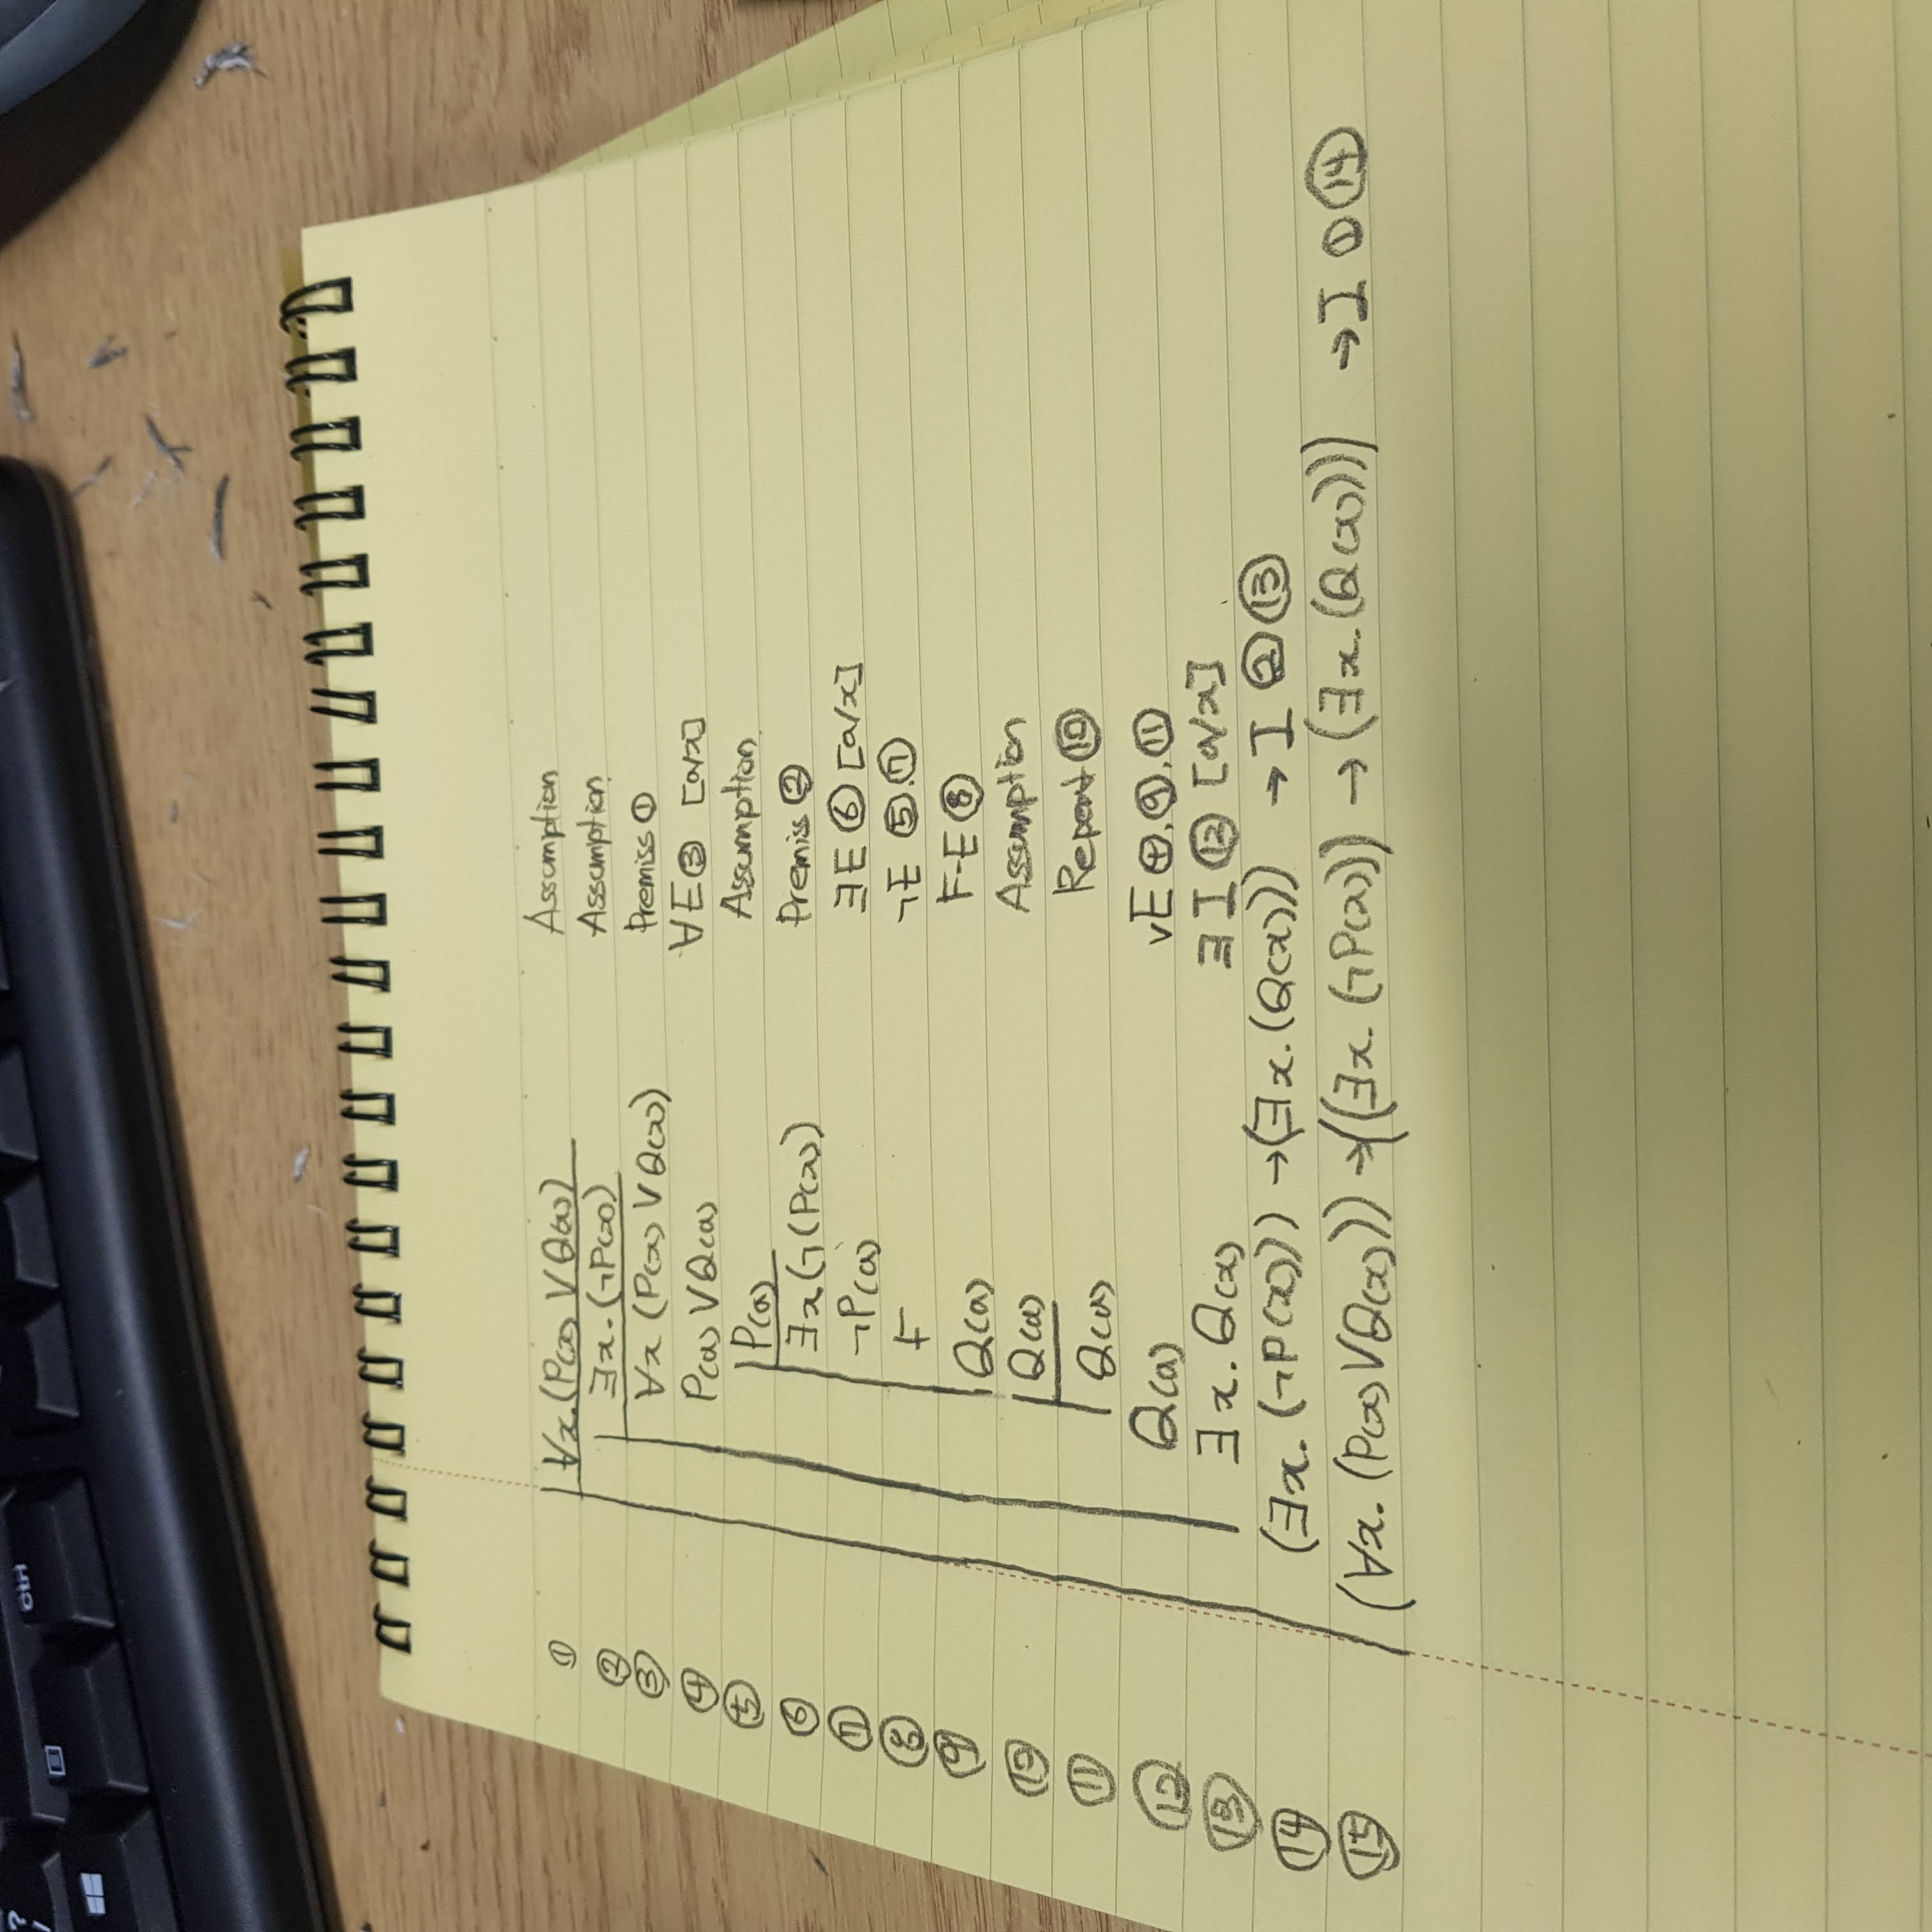 ?
/
Ctrl
① ∀x.(P(x) ∨ Q(x)) Assumption
② ∃x.(¬P(x)) Assumption
③ ∀x (P(x) ∨ Q(x)) Premiss ①
④ P(a) ∨ Q(a) ∀E ③ [a/x]
⑤ P(a) Assumption
⑥ ∃x(¬(P(x)) Premiss ②
⑦ ¬P(a) ∃E ⑥ [a/x]
⑧ F ¬E ⑤.⑦
⑨ Q(a) F-E ⑧
⑩ Q(a) Assumption
⑪ Q(a) Repeat ⑩
⑫ Q(a) ∨E ④.⑨.⑪
⑬ ∃x.Q(x) ∃I ⑫ [a/x]
⑭ (∃x.(¬P(x))) → (∃x.(Q(x))) →I ② ⑬
⑮ (∀x.(P(x) ∨ Q(x))) → ((∃x.(¬P(x))) → (∃x.(Q(x)))) →I ① ⑭